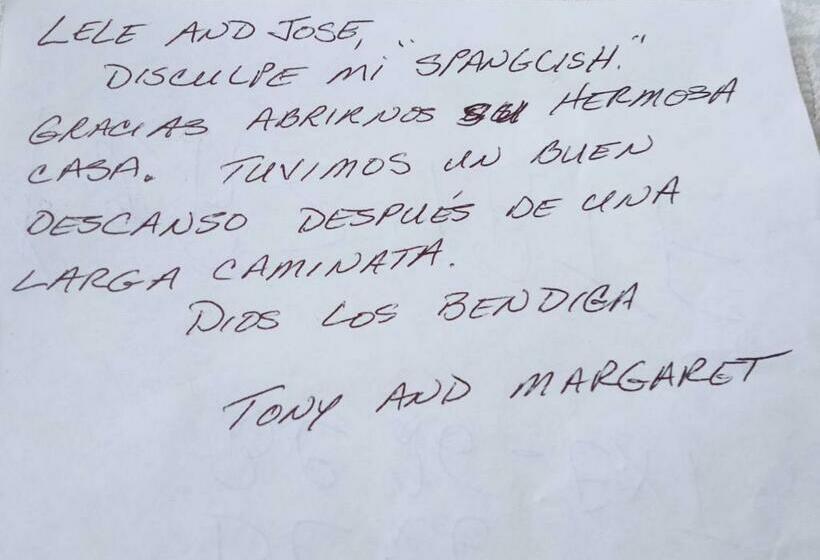 LELE AND JOSE,
DISCULPE MI "SPANGLISH."
GRACIAS ABRIRNOS SU HERMOSA
CASA. TUVIMOS UN BUEN
DESCANSO DESPUÉS DE UNA
LARGA CAMINATA.
DIOS LOS BENDIGA
TONY AND MARGARET